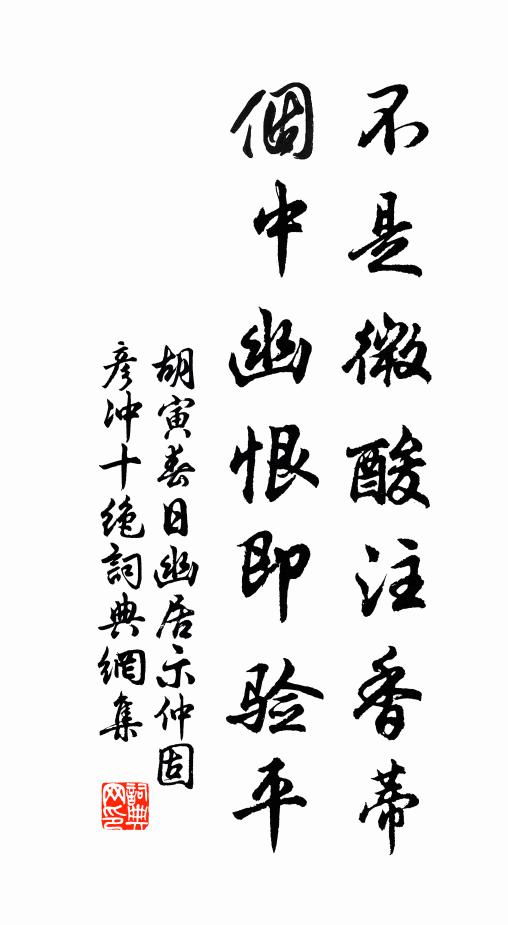 不是微酸注香蒂
個中幽恨即验平
胡寅春日幽居示仲固
彦冲十绝詞典網集
詞典网印